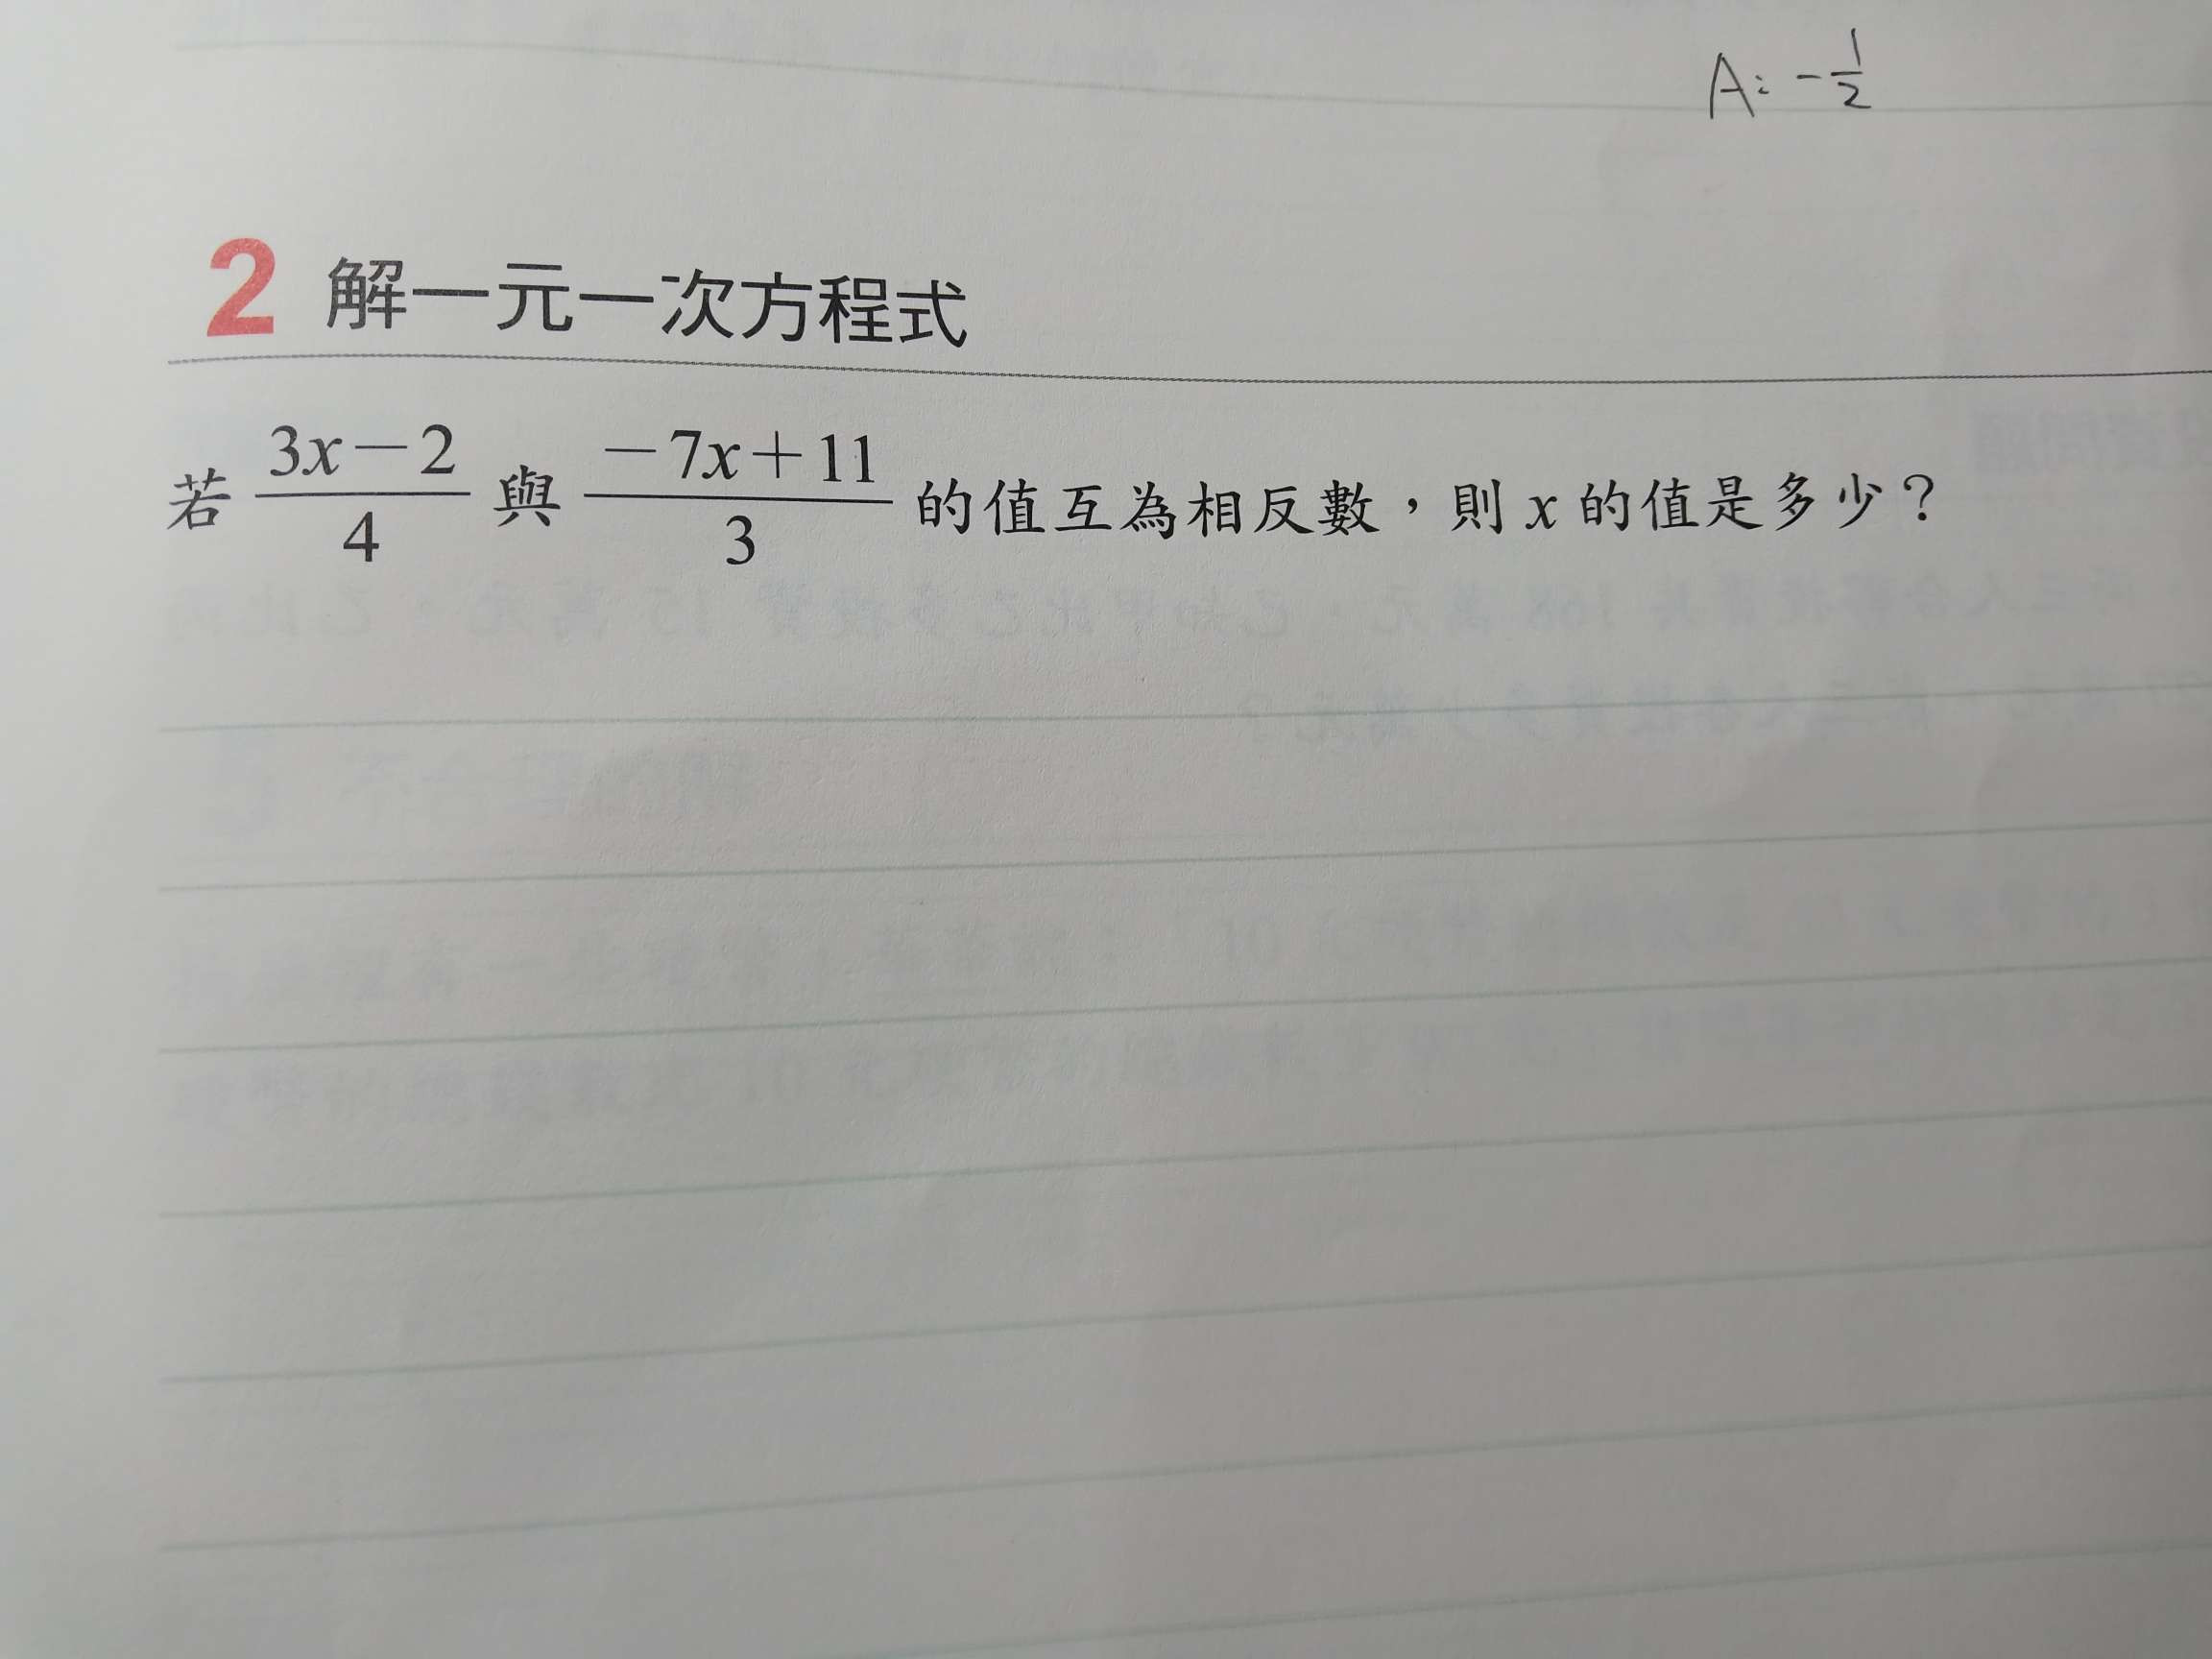 A: -1/2
2 解一元一次方程式
若 (3x-2)/4 與 (-7x+11)/3 的值互為相反數，則 x 的值是多少？